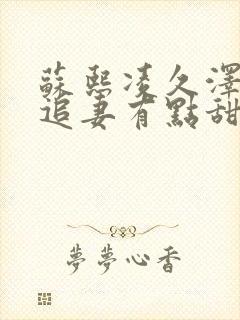 蘇熙凌久澤
追妻有點甜
夢夢心香